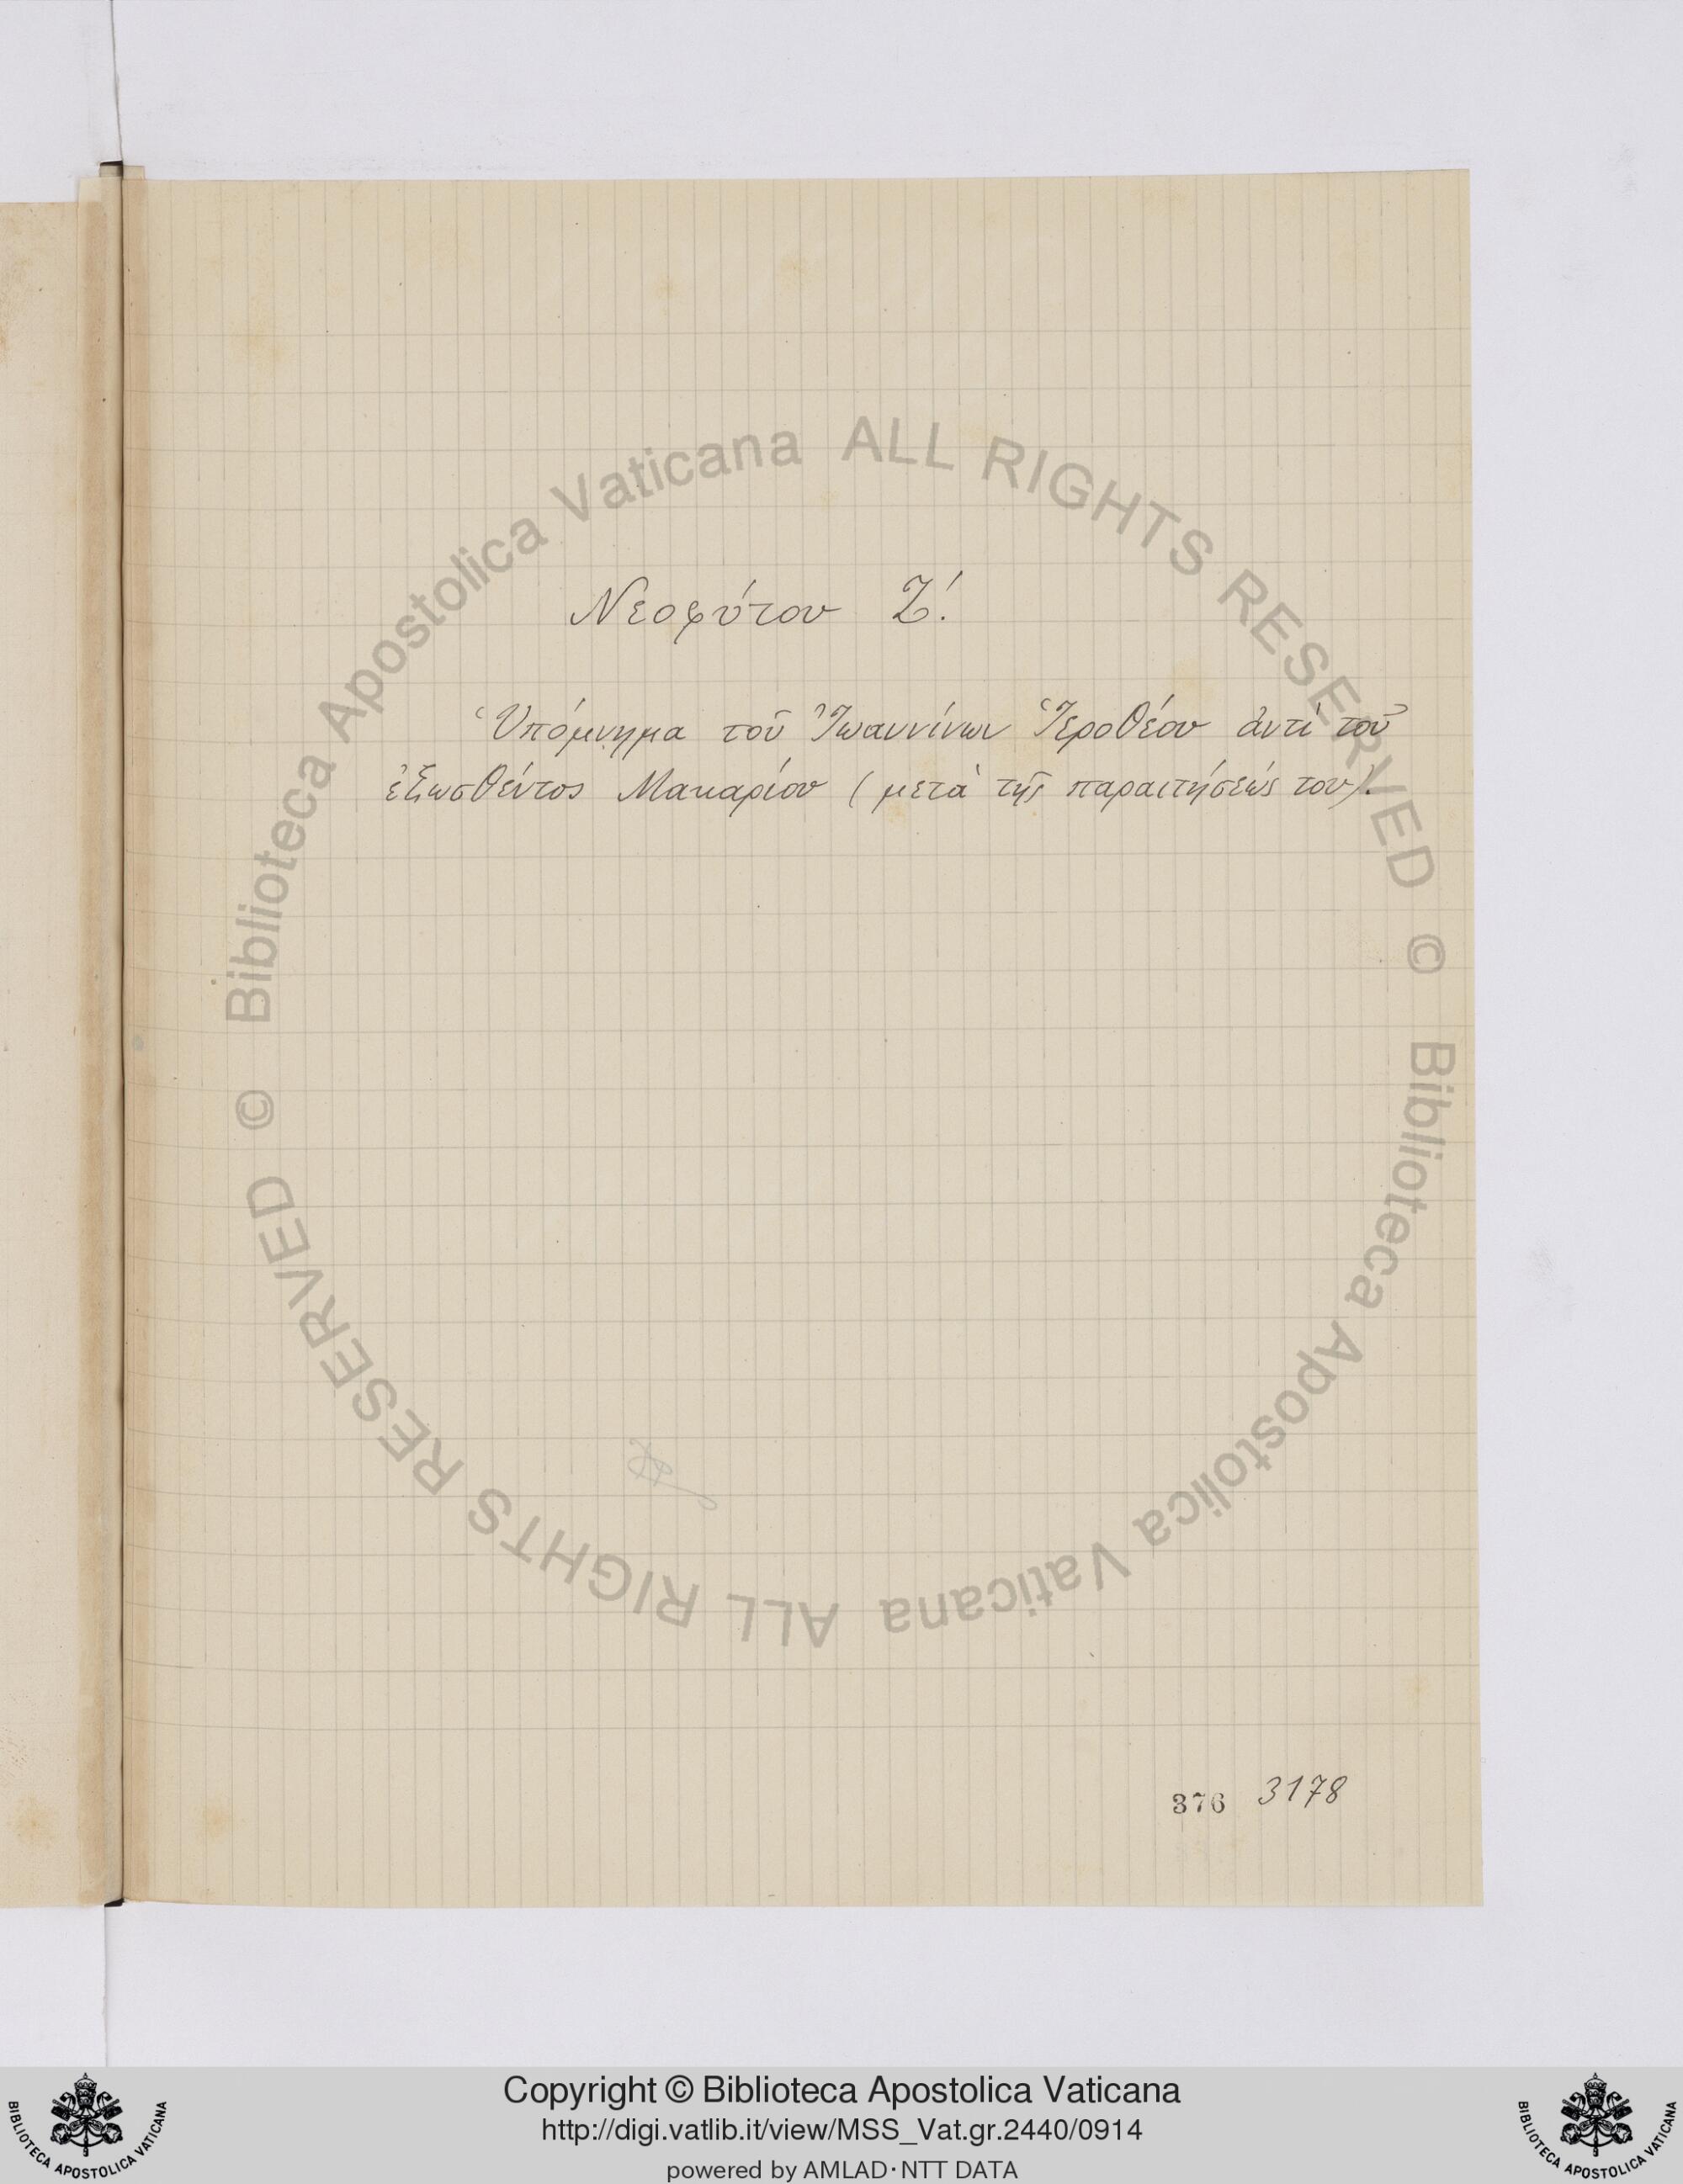 Νεοφύτου Ζ'.
Ὑπόμνημα τοῦ Ἰωαννίνων Ἱεροθέου ἀντὶ τοῦ
ἐξωσθέντος Μακαρίου (μετὰ τῆς παραιτήσεώς του).
376 3178
© Biblioteca Apostolica Vaticana ALL RIGHTS RESERVED
© Biblioteca Apostolica Vaticana ALL RIGHTS RESERVED
BIBLIOTECA APOSTOLICA VATICANA
Copyright © Biblioteca Apostolica Vaticana
http://digi.vatlib.it/view/MSS_Vat.gr.2440/0914
powered by AMLAD·NTT DATA
BIBLIOTECA APOSTOLICA VATICANA